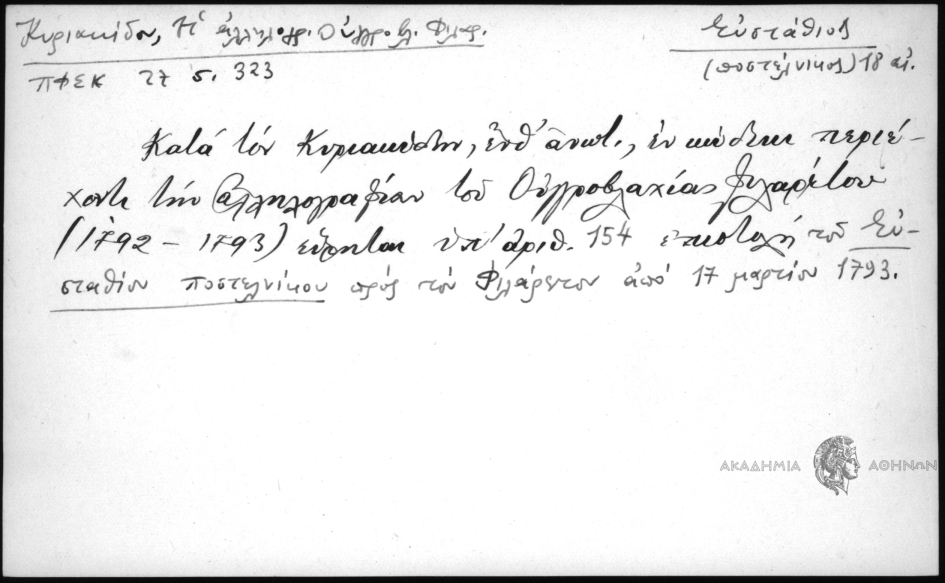 Κυριακίδου, Ἡ ἀλληλογρ. Οὐγγρ.βλ. Φιλαρ.
Εὐστάθιος
ΠΦΣΚ 27 σ. 323
(ποστέλνικος) 18 αἰ.
Κατά τόν Κυριακίδην, ἔνθ' ἀνωτ., ἐν κώδικι περιέ-
χοντι τήν ἀλληλογραφίαν τοῦ Οὐγγροβλαχίας Φιλαρέτου
(1792 - 1793) εὕρηται ὑπ' ἀριθ. 154 ἐπιστολή τοῦ Εὐ-
σταθίου ποστελνίκου πρός τόν Φιλάρετον ἀπό 17 μαρτίου 1793.
ΑΚΑΔΗΜΙΑ ΑΘΗΝΩΝ